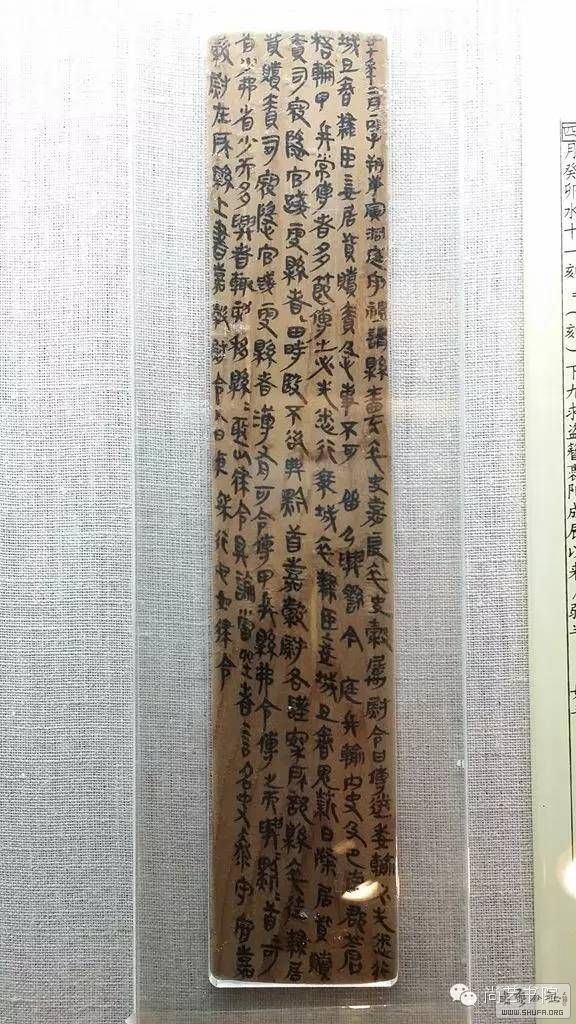 四月癸卯水十一刻=(刻)下九求盜簪裊陽成辰以來
廿七年二月丙子朔庚寅洞庭守禮謂縣嗇夫卒史嘉叚卒史穀屬尉令曰傳送委輸必先悉行
城旦舂隸臣妾居貲贖責急事不可留乃興繇今洞庭兵輸內史及巴南郡蒼
梧輸甲兵當傳者多節傳之必先悉行乘城卒隸臣妾城旦舂鬼薪白粲居貲贖
責司寇隱官踐更縣者田時殹不欲興黔首嘉穀尉各謹案所部縣卒徒隸居
貲贖責司寇隱官踐更縣者簿有可令傳甲兵縣弗令傳之而興黔=首=可
省少弗省少而多興者輒劾移縣=亟以律令具論當坐者言名史泰守府嘉
穀尉在所縣上書嘉穀尉令人日夜端行它如律令
尚藝書院
WWW.SHUFA.ORG